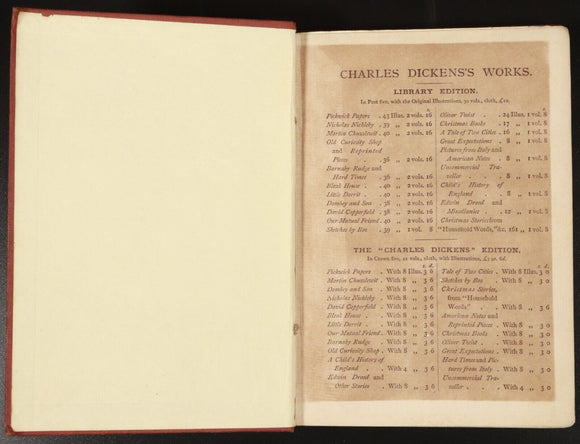 CHARLES DICKENS'S WORKS.
LIBRARY EDITION.
In Post 8vo, with the Original Illustrations, 30 vols., cloth, £12.
s.
Pickwick Papers . 43 Illus. 2 vols. 16
Nicholas Nickleby . 39 „ 2 vols. 16
Martin Chuzzlewit . 40 „ 2 vols. 16
Old Curiosity Shop
and Reprinted
Pieces . . 36 „ 2 vols. 16
Barnaby Rudge and
Hard Times . 36 „ 2 vols. 16
Bleak House . . 40 „ 2 vols. 16
Little Dorrit . . 40 „ 2 vols. 16
Dombey and Son . 38 „ 2 vols. 16
David Copperfield . 38 „ 2 vols. 16
Our Mutual Friend . 40 „ 2 vols. 16
Sketches by Boz . 39 „ 1 vol. 8
s.
Oliver Twist . . 24 Illus. 1 vol. 8
Christmas Books . 17 „ 1 vol. 8
A Tale of Two Cities . 16 „ 1 vol. 8
Great Expectations . 8 „ 1 vol. 8
Pictures from Italy and
American Notes . 8 „ 1 vol. 8
Uncommercial Tra-
veller . . . 8 „ 1 vol. 8
Child's History of
England . . 8 „ 1 vol. 8
Edwin Drood and
Miscellanies . 12 „ 1 vol. 8
Christmas Stories from
"Household Words," &c. 161 „ 1 vol. 8
THE "CHARLES DICKENS" EDITION.
In Crown 8vo, 21 vols., cloth, with Illustrations, £3 9s. 6d.
s. d.
Pickwick Papers . With 8 Illus. 3 6
Martin Chuzzlewit . With 8 „ 3 6
Dombey and Son . With 8 „ 3 6
Nicholas Nickleby . With 8 „ 3 6
David Copperfield . With 8 „ 3 6
Bleak House . . With 8 „ 3 6
Little Dorrit . . With 8 „ 3 6
Our Mutual Friend . With 8 „ 3 6
Barnaby Rudge . With 8 „ 3 6
Old Curiosity Shop . With 8 „ 3 6
A Child's History of
England . . With 4 „ 3 6
Edwin Drood and
Other Stories . With 8 „ 3 6
s. d.
Tale of Two Cities . With 8 Illus. 3 0
Sketches by Boz . With 8 „ 3 0
Christmas Stories,
from "Household
Words" . . With 8 „ 3 6
American Notes and
Reprinted Pieces . With 8 „ 3 0
Christmas Books . With 8 „ 3 0
Oliver Twist . . With 8 „ 3 0
Great Expectations . With 8 „ 3 0
Hard Times and Pic-
tures from Italy . With 8 „ 3 0
Uncommercial Tra-
veller . . . With 4 „ 3 0